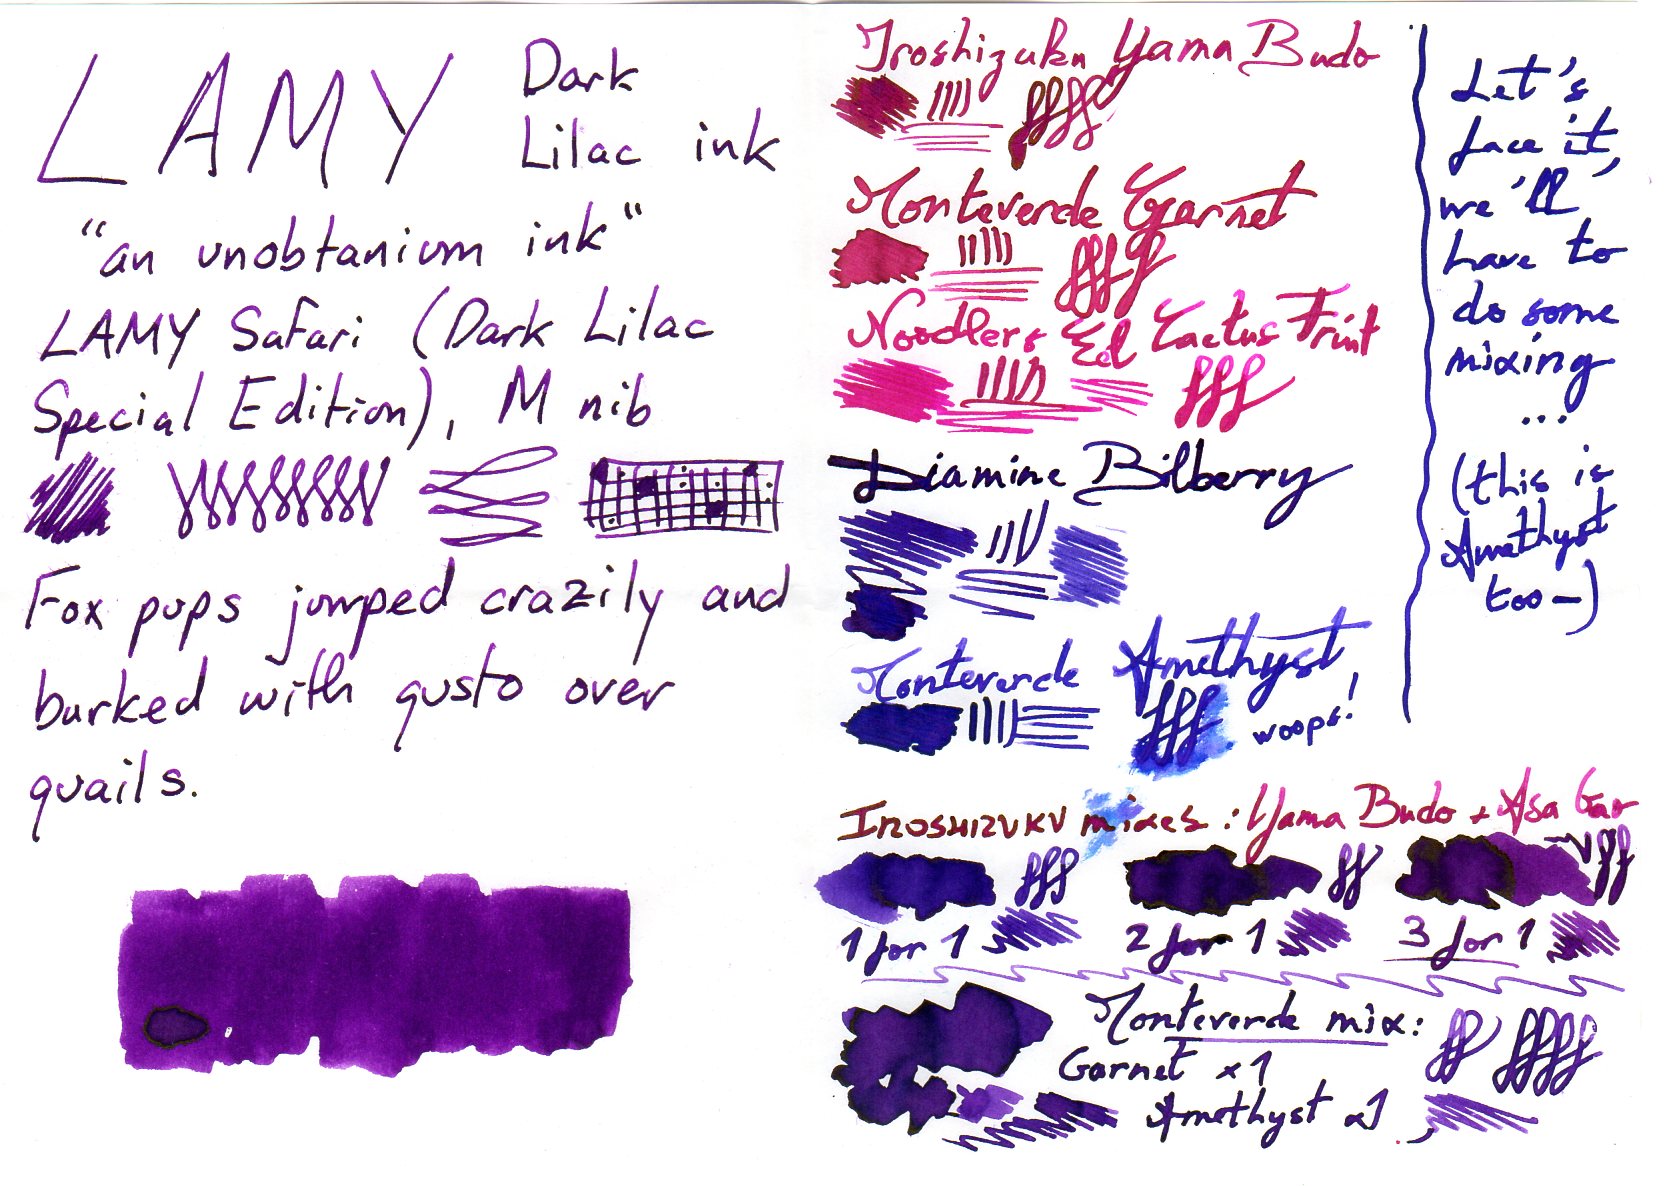 LAMY Dark
Lilac ink
"an unobtanium ink"
LAMY Safari (Dark Lilac
Special Edition), M nib
Fox pups jumped crazily and
barked with gusto over
quails.
Iroshizuku Yama Budo
Monteverde Garnet
Noodlers Eel Cactus Fruit
Diamine Bilberry
Monteverde Amethyst
woops!
Let's
face it,
we'll
have to
do some
mixing
...
(this is
Amethyst
too-)
IROSHIZUKU mixes: Yama Budo + Asa Gao
1 for 1 2 for 1 3 for 1
Monteverde mix:
Garnet x1
Amethyst x1